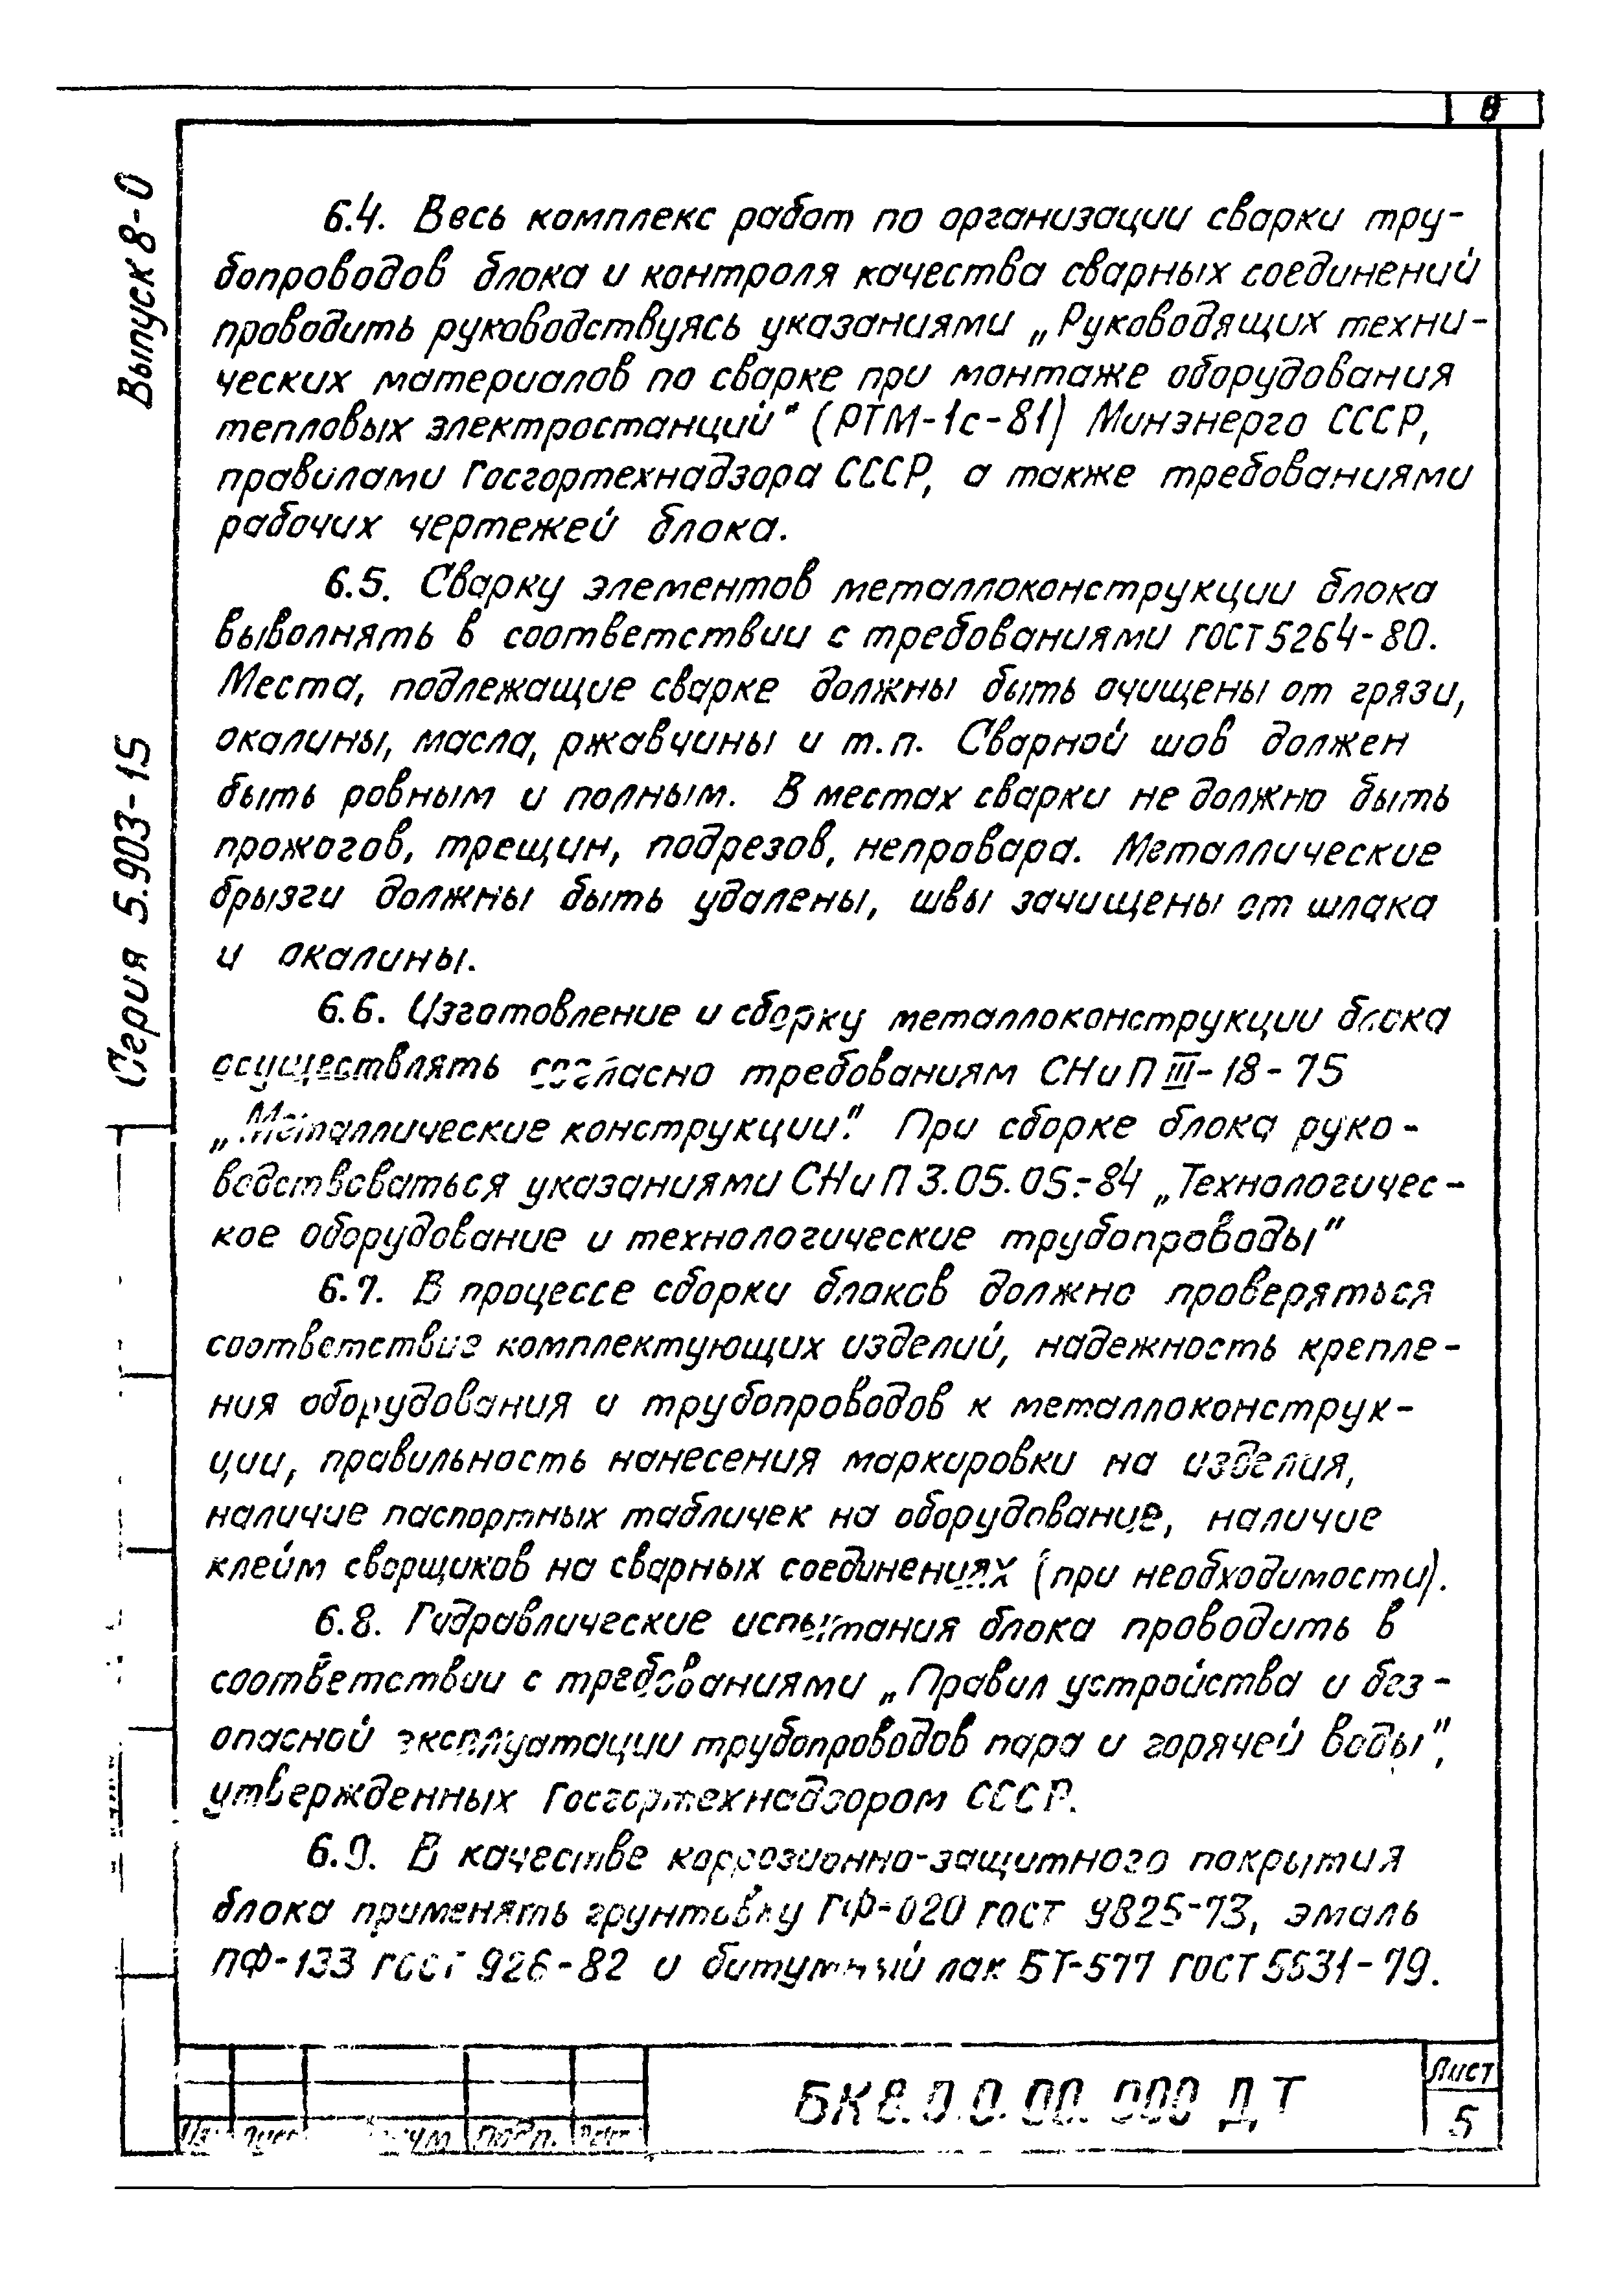 8
Выпуск 8-0
Серия 5.903-15
6.4. Весь комплекс работ по организации сварки тру-
бопроводов блока и контроля качества сварных соединений
проводить руководствуясь указаниями „Руководящих техни-
ческих материалов по сварке при монтаже оборудования
тепловых электростанций" (РТМ-1с-81) Минэнерго СССР,
правилами Госгортехнадзора СССР, а также требованиями
рабочих чертежей блока.
6.5. Сварку элементов металлоконструкции блока
выволнять в соответствии с требованиями ГОСТ 5264-80.
Места, подлежащие сварке должны быть очищены от грязи,
окалины, масла, ржавчины и т.п. Сварной шов должен
быть ровным и полным. В местах сварки не должно быть
прожогов, трещин, подрезов, непровара. Металлические
брызги должны быть удалены, швы зачищены от шлака
и окалины.
6.6. Изготовление и сборку металлоконструкции блока
осуществлять согласно требованиям СНиП III-18-75
„Металлические конструкции". При сборке блока руко-
водствоваться указаниями СНиП 3.05.05.-84 „Технологичес-
кое оборудование и технологические трубопроводы"
6.7. В процессе сборки блоков должно проверяться
соответствие комплектующих изделий, надежность крепле-
ния оборудования и трубопроводов к металлоконструк-
ции, правильность нанесения маркировки на изделия,
наличие паспортных табличек на оборудование, наличие
клейм сворщиков на сварных соединениях (при необходимости).
6.8. Гидравлические испытания блока проводить в
соответствии с требованиями „Правил устройства и без-
опасной эксплуатации трубопроводов пара и горячей воды",
утвержденных Госгортехнадзором СССР.
6.9. В качестве коррозионно-защитного покрытия
блока применять грунтовку ГФ-020 ГОСТ 9825-73, эмаль
ПФ-133 ГОСТ 926-82 и битумный лак БТ-577 ГОСТ 5631-79.
Подп.
БК 8.0.0.00.000 ДТ
Лист
5